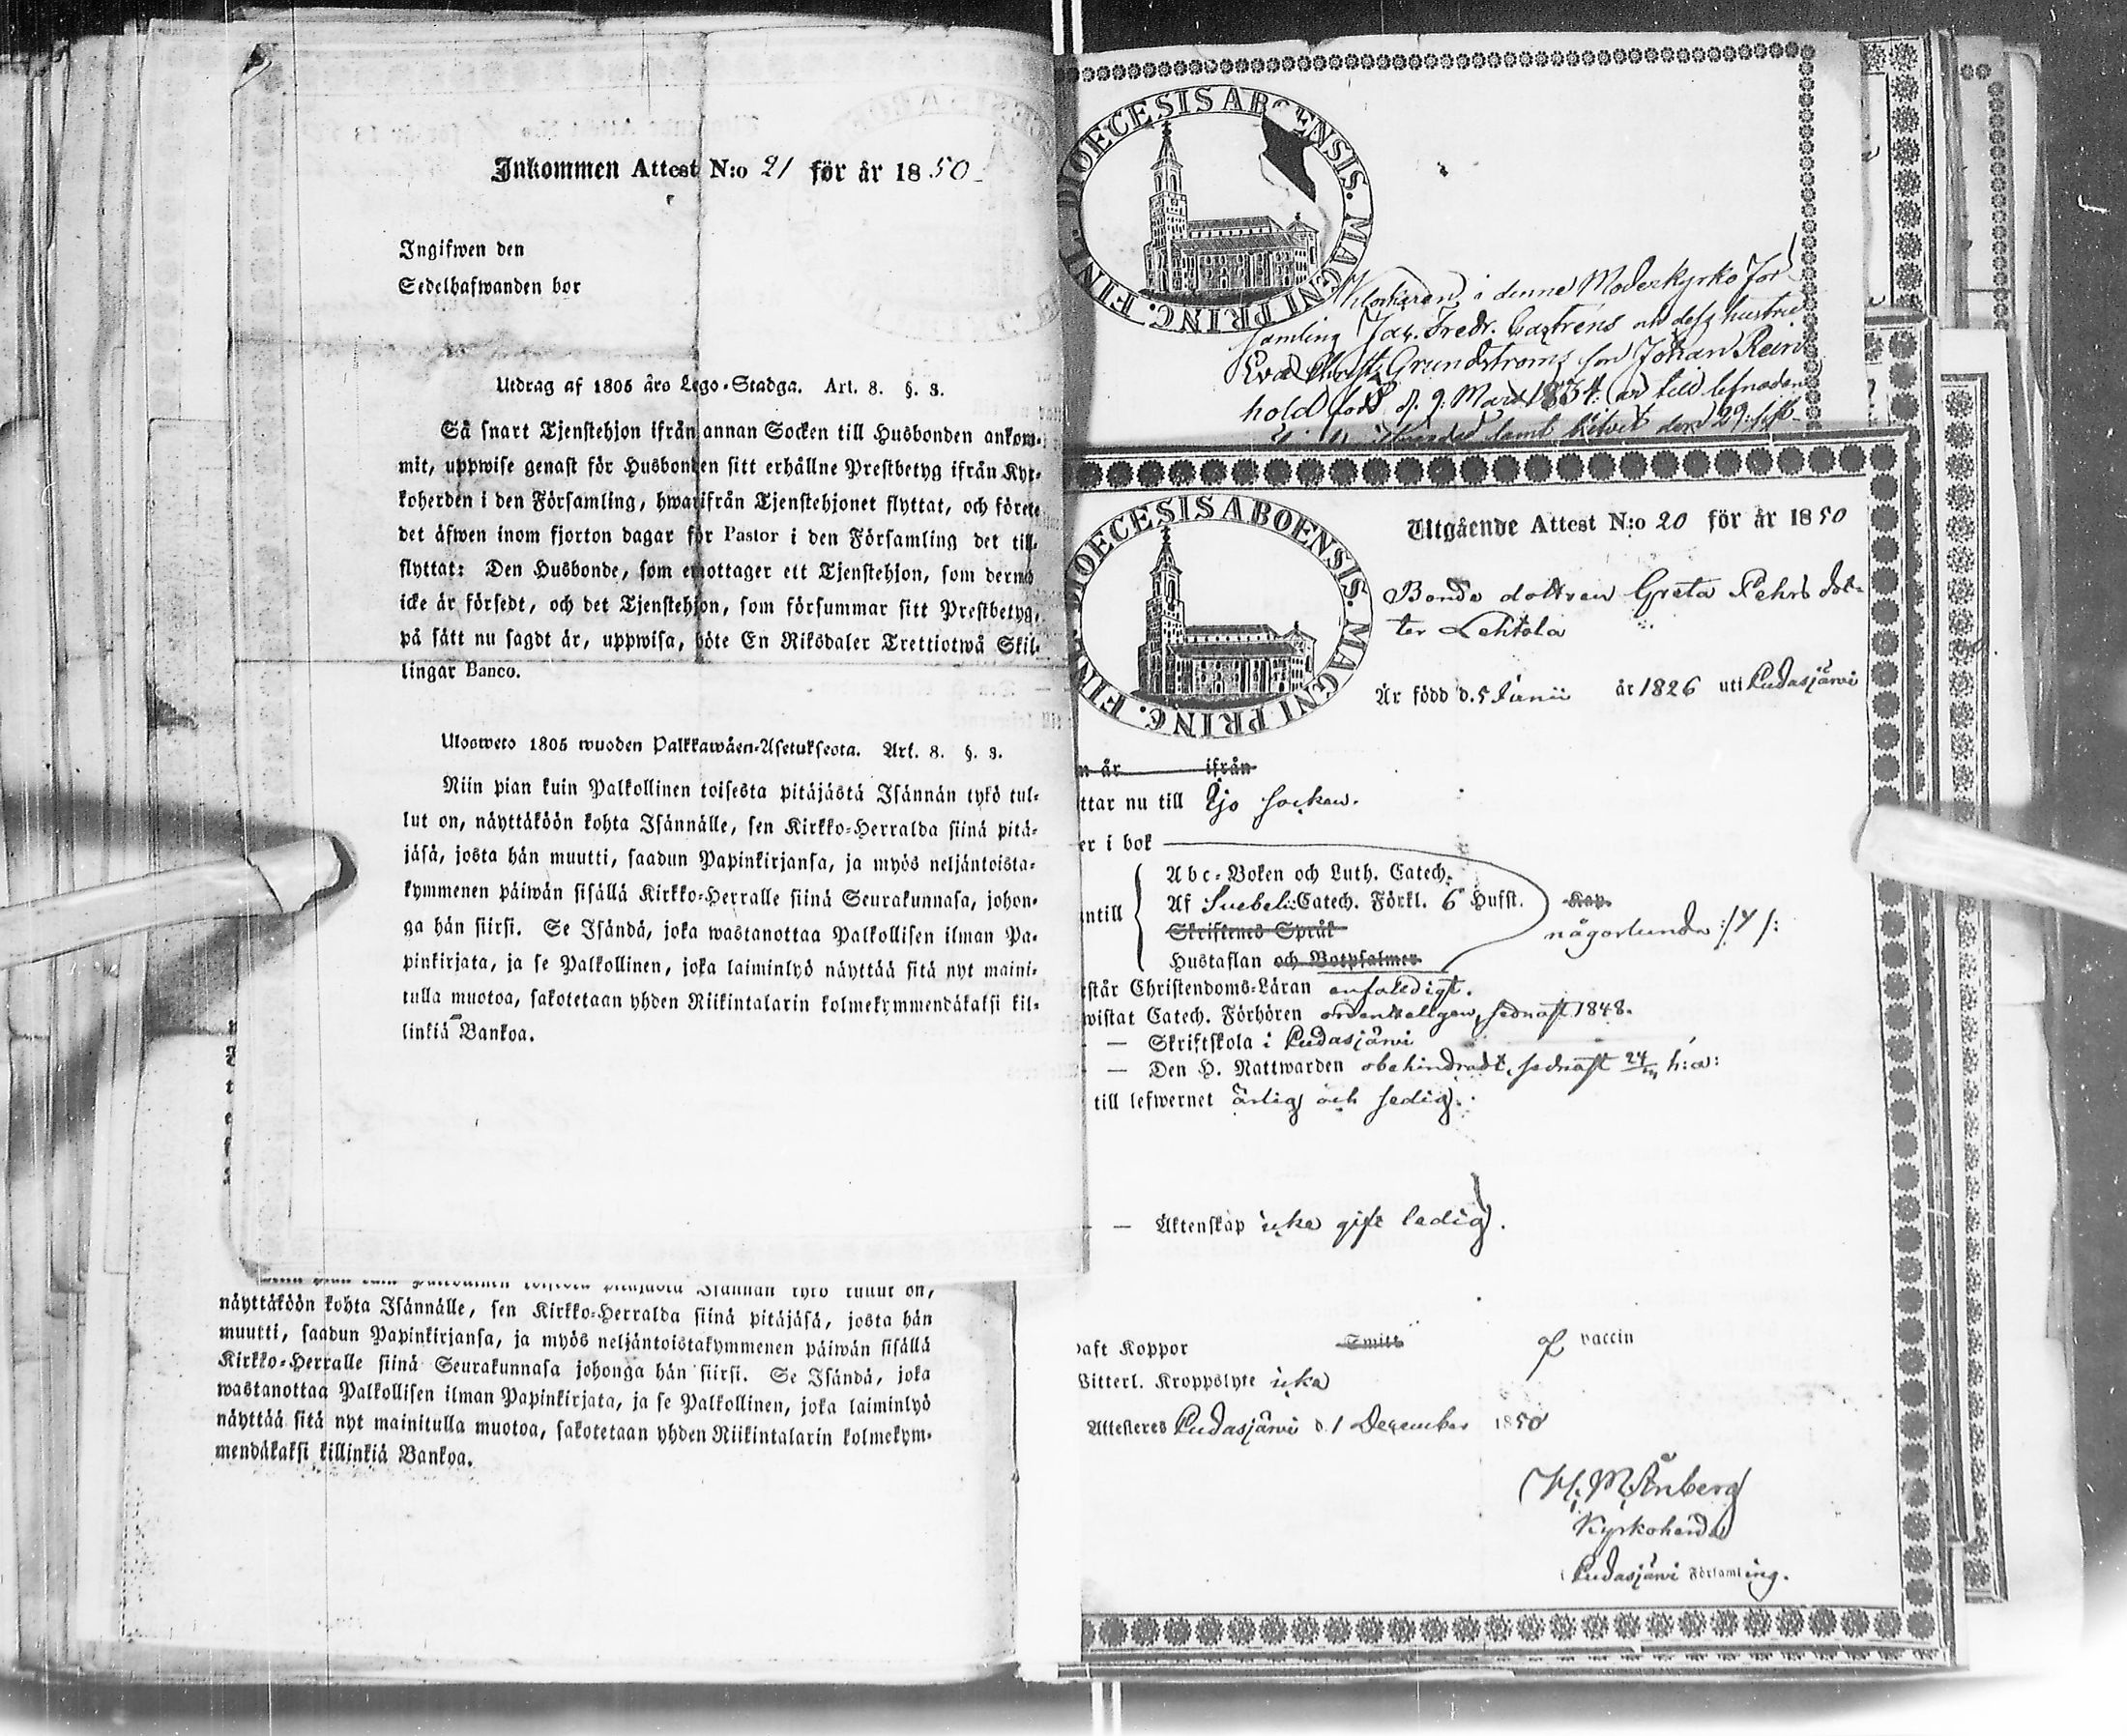 Inkommen Attest N:o 21 för år 1850
Ingifwen den
Sedelhafwanden bor
Utdrag af 1805 års Lego-Stadga. Art. 8. §. 3.
Så snart Tjenstehjon ifrån annan Socken till Husbonden ankom-
mit, uppwise genast för Husbonden sitt erhållne Prestbetyg ifrån Kyr-
koherden i den Församling, hwarifrån Tjenstehjonet flyttat, och förete
det äfwen inom fjorton dagar för Pastor i den Församling det till-
flyttat: Den Husbonde, som emottager ett Tjenstehjon, som dermed
icke är försedt, och det Tjenstehjon, som försummar sitt Prestbetyg,
på sätt nu sagdt är, uppwisa, böte En Riksdaler Trettiotwå Skil-
lingar Banco.
Ulosweto 1805 wuoden Palkkawäen-Asetuksesta. Art. 8. §. 3.
Niin pian kuin Palkollinen toisesta pitäjästä Isännän tykö tul-
lut on, näyttäköön kohta Isännälle, sen Kirkko-Herralda siinä pitä-
jäsä, josta hän muutti, saadun Papinkirjansa, ja myös neljäntoista-
kymmenen päiwän sisällä Kirkko-Herralle siinä Seurakunnasa, johon-
ga hän siirsi. Se Isändä, joka wastanottaa Palkollisen ilman Pa-
pinkirjata, ja se Palkollinen, joka laiminlyö näyttää sitä nyt maini-
tulla muotoa, sakotetaan yhden Riikintalarin kolmekymmendäkaksi kil-
linkiä Bankoa.
näyttäköön kohta Isännälle, sen Kirkko-Herralda siinä pitäjäsä, josta hän
muutti, saadun Papinkirjansa, ja myös neljäntoistakymmenen päiwän sisällä
Kirkko-Herralle siinä Seurakunnasa johonga hän siirsi. Se Isändä, joka
wastanottaa Palkollisen ilman Papinkirjata, ja se Palkollinen, joka laiminlyö
näyttää sitä nyt mainitulla muotoa, sakotetaan yhden Riikintalarin kolmekym-
mendäkaksi killinkiä Bankoa.
DIOECESIS ABOENSIS. MAGNI PRINC. FINL.
Klockaren i denne Moderkyrko För
samling Jac. Fredr. Castréns och dess hustru
Eva Christ. Grundströms son Johan Rein
hold född d. 9 Mars 1834: är till lefnaden
DIOECESIS ABOENSIS. MAGNI PRINC. FIN
Utgående Attest N:o 20 för år 1850
Bonde dottren Greta Pehrs dot-
ter Lehtola
Är född d. 5 Junii år 1826 uti Pudasjärvi
n år ifrån
ttar nu till Ijo socken.
er i bok
Abc-Boken och Luth. Catech.
ntill Af Svebeli: Catech. Förkl. 6 Hufst. Kap.
Skriftenes Språk någorlunda :/4/:
Hustaflan och Botpsalmer
står Christendoms-Läran enfaldigt.
wistat Catech. Förhören ordentligen, sednast 1848.
— Skriftskola i Pudasjärvi
— Den H. Nattwarden obehindradt, sednast 24/11 h: a:
till lefwernet ärlig och sedig.
— Äktenskap icke gift ledig.
haft Koppor Smitt af vaccin
Witterl. Kroppslyte icke
Attesteres Pudasjärvi d. 1 December 1850
H. M. Ånberg
Kyrkoherde
i Pudasjärvi Församling.